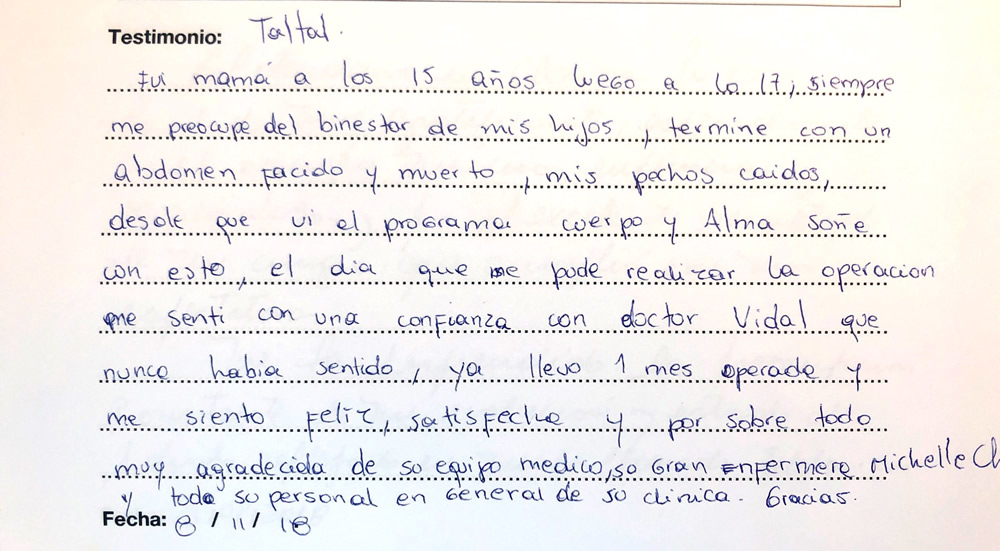 Testimonio: Taltal.
Fui mamá a los 15 años luego a lo 17, siempre
me preocupe del binestar de mis hijos, termine con un
abdomen facido y muerto, mis pechos caidos,
desde que vi el programa cuerpo y Alma soñe
con esto, el dia que me pude realizar la operacion
me senti con una confianza con doctor Vidal que
nunca habia sentido, ya llevo 1 mes operada y
me siento feliz, satisfecha y por sobre todo
muy agradecida de su equipo medico, so Gran Enfermera Michelle Ch
y todo su personal en General de su clinica. Gracias.
Fecha: 8 / 11 / 18